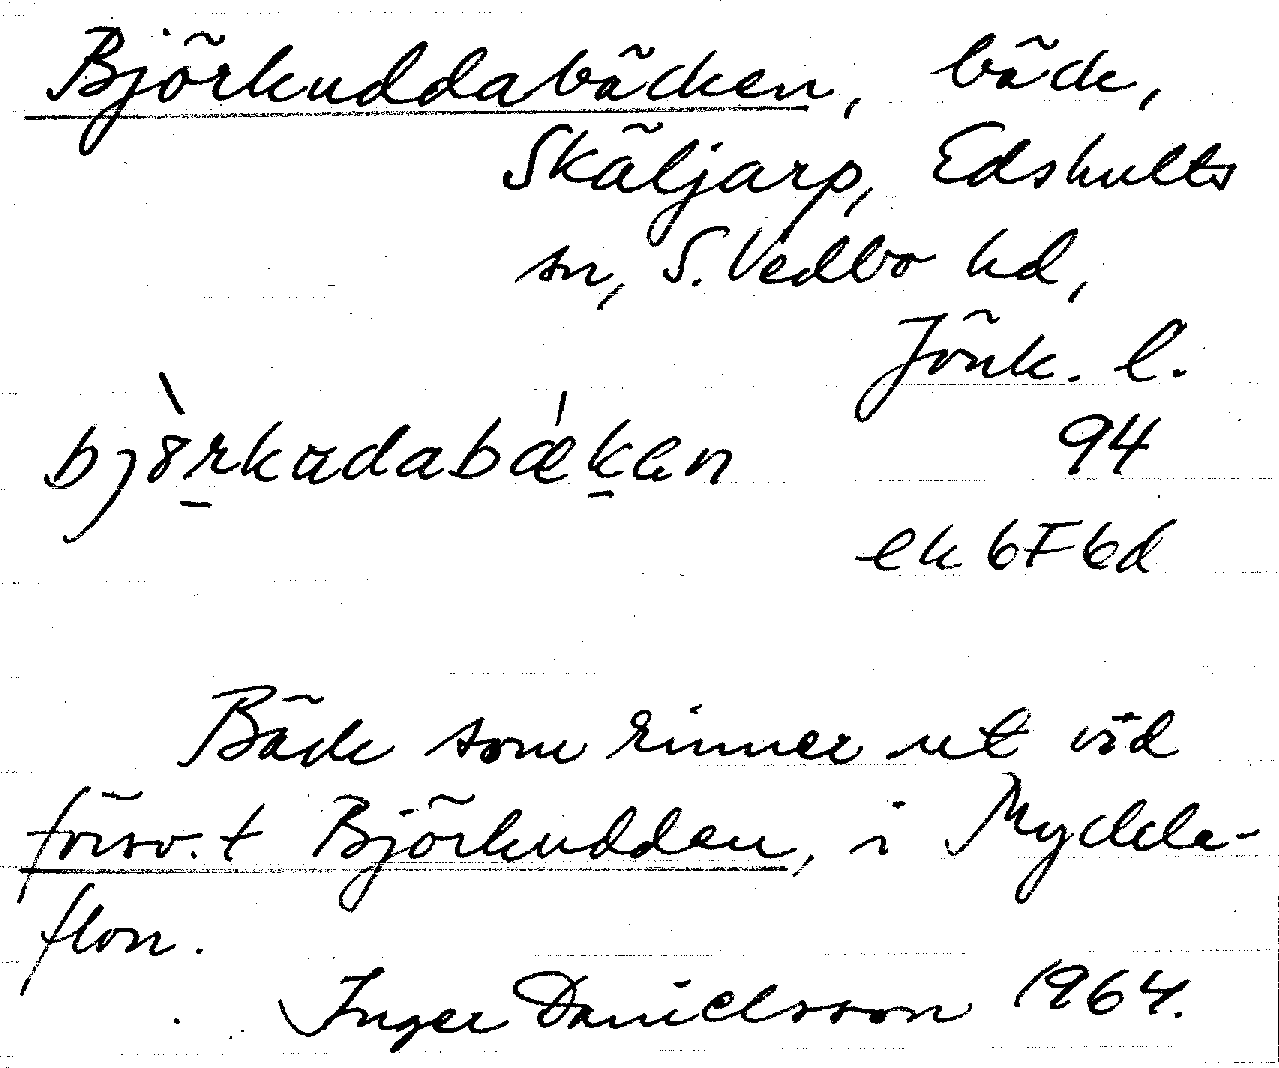 Björkuddabäcken, bäck,
Skäljarp, Edshults
sn, S. Vedbo hd,
Jönk. l.
bjòrkadabǽkan 94
ek 6F 6d
Bäck som rinner ut vid
försv. t Björkudden, i Myckle-
flon.
Inger Danielsson 1964.